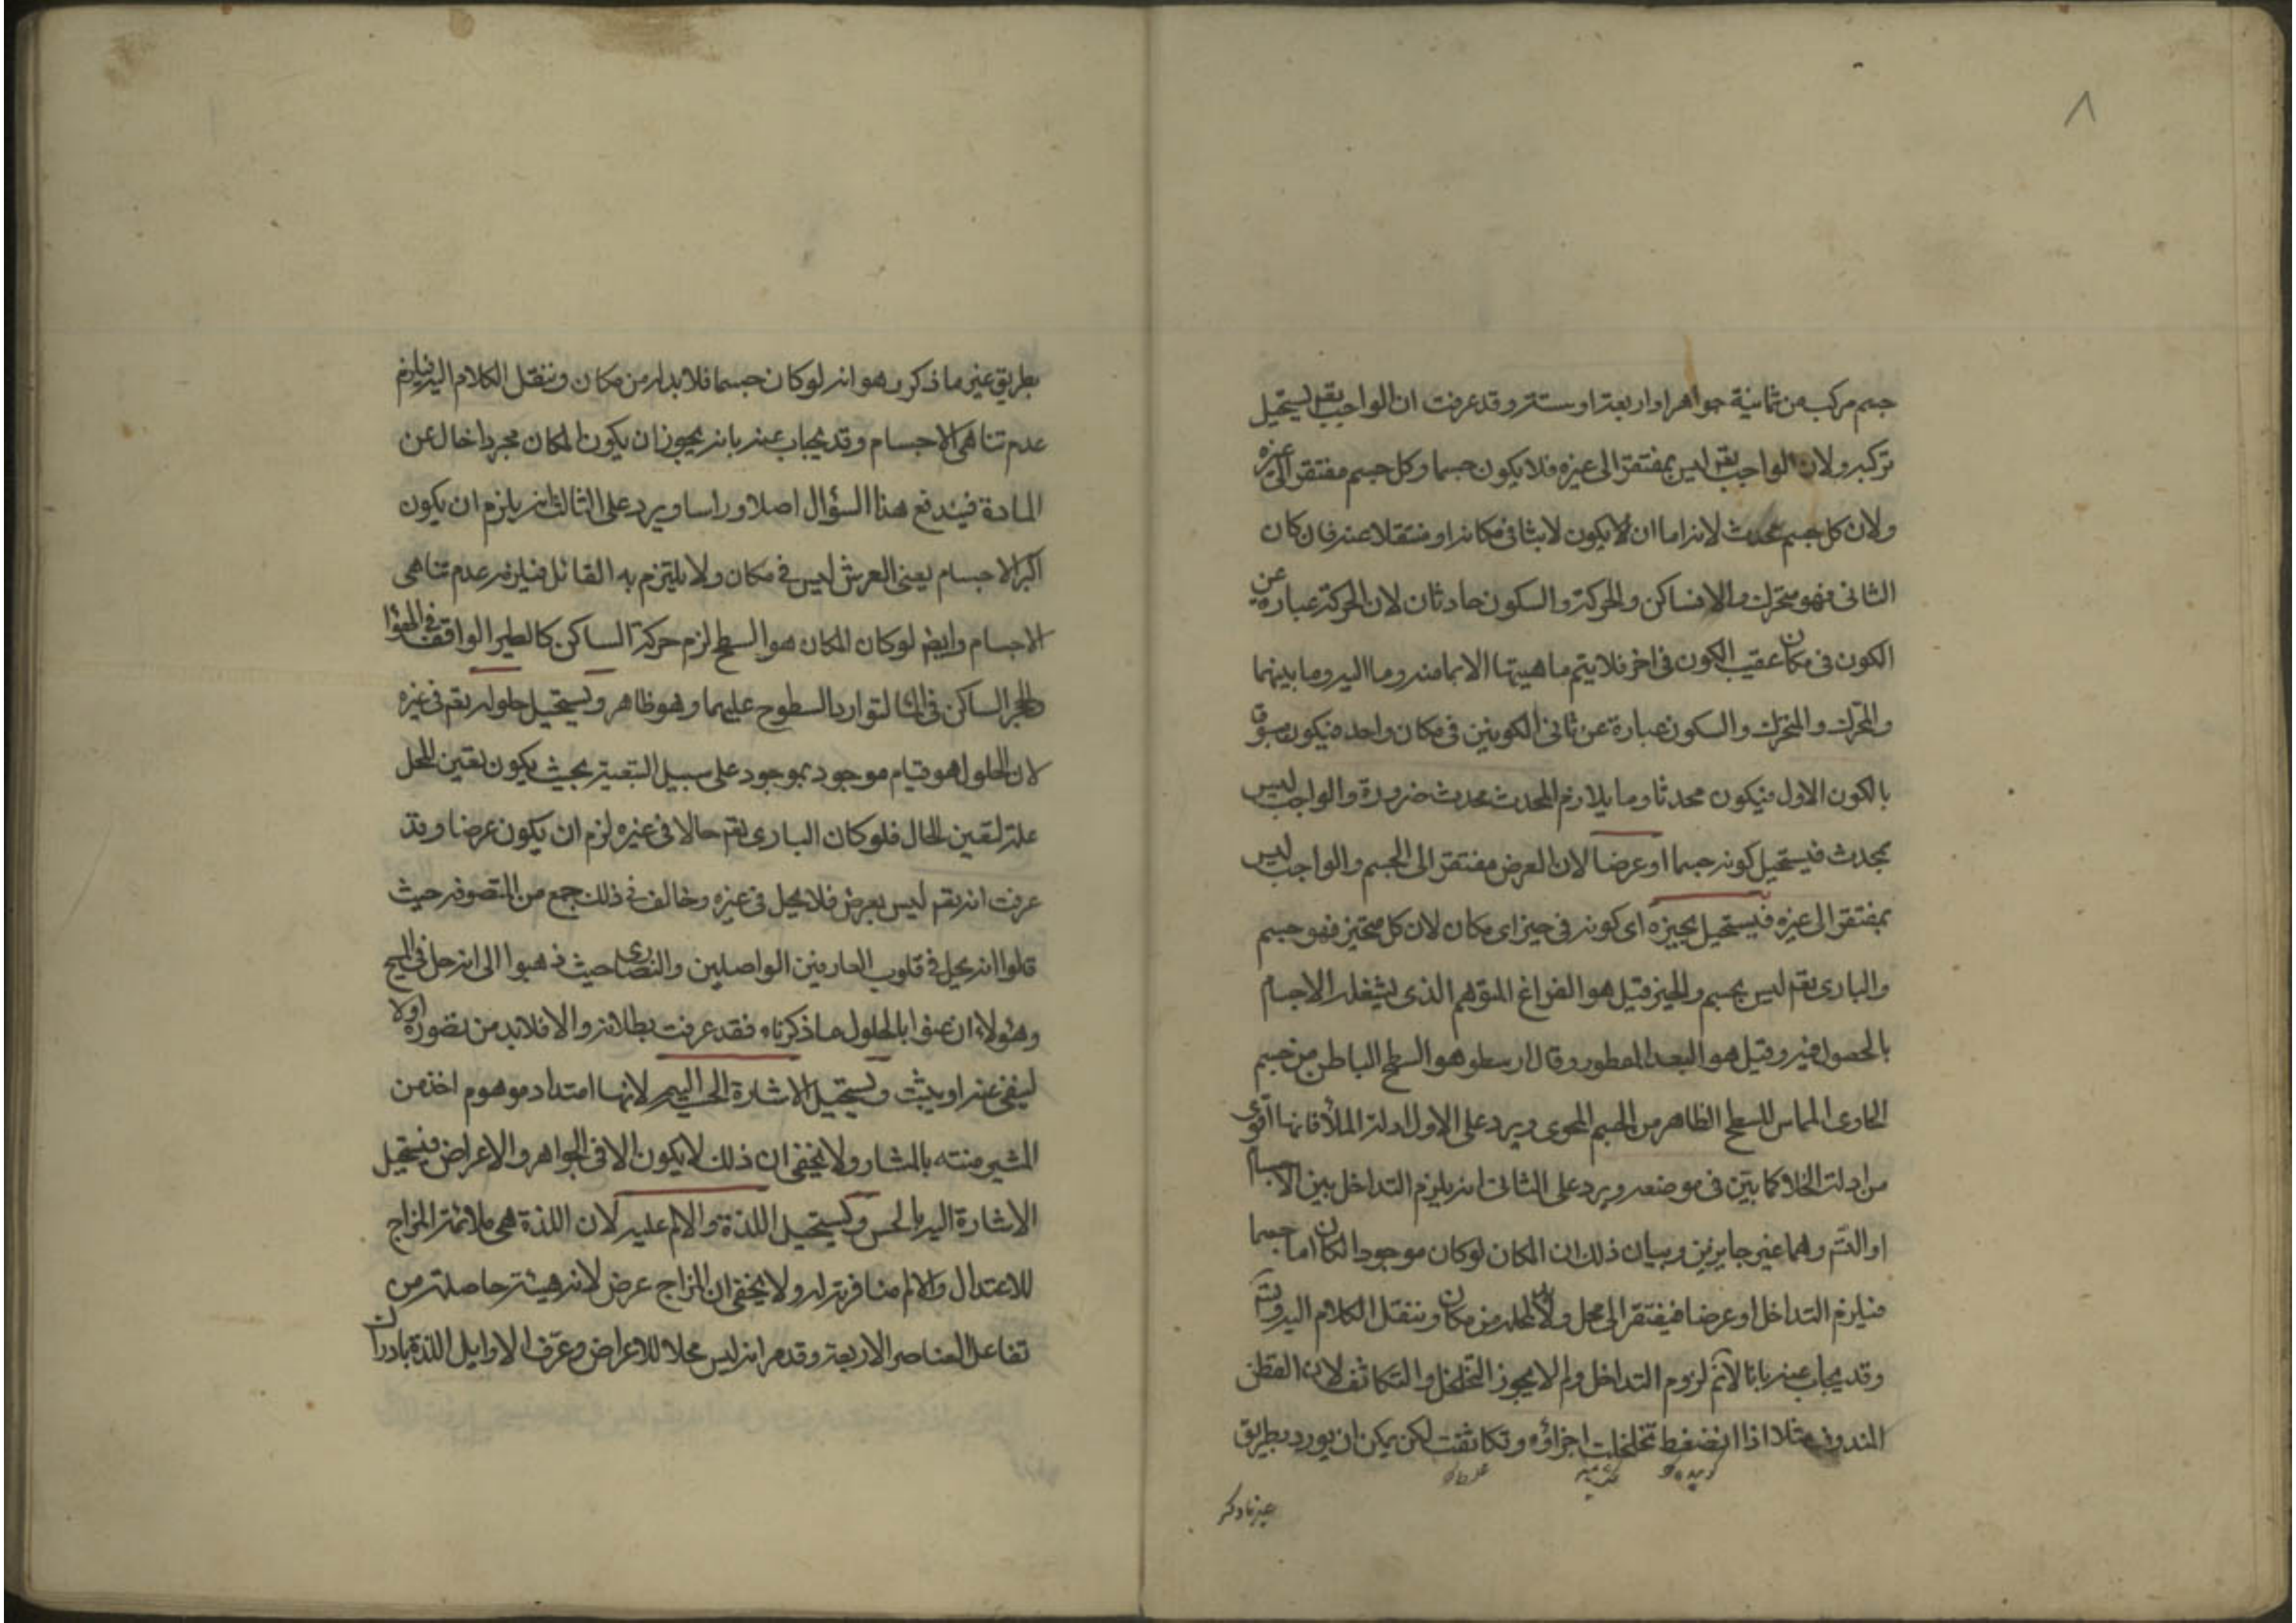 ٨
جسم مركب من ثمانية جواهر او اربعة او ستة وقد عرفت ان الواجب تقم يستحيل
تركبه ولان الواجب تقم ليس بمفتقر الى غيره فلا يكون جسما وكل جسم مفتقر الى غيره
ولان كل جسم محدث لانه اما ان لا يكون لابثا فى مكانه او منتقلا عنه فان كان
الثانى فهو متحرك والا فساكن والحركة والسكون حادثان لان الحركة عبارة عن
الكون فى مكان عقيب الكون فى اخر فلا يتم ماهيتها الا بما منه وما اليه وما بينهما
والمحرك والمتحرك والسكون عبارة عن ثانى الكونين فى مكان واحد فيكون مسبوق
بالكون الاول فيكون محدثا وما يلازم المحدث محدث ضرورة والواجب ليس
بمحدث فيستحيل كونه جسما او عرضا لان العرض مفتقر الى الجسم والواجب ليس
بمفتقر الى غيره فيستحيل تحيزه اى كونه فى حيز اى مكان لان كل متحيز فهو جسم
والبارى تقم ليس بجسم والحيز قيل هو الفراغ المتوهم الذى يشغله الاجسام
بالحصول فيه وقيل هو البعد المفطور وقال ارسطو هو السطح الباطن من جسم
الحاوى المماس للسطح الظاهر من الجسم المحوى ويرد على الاول ادلة الملأ فانها اقوى
من ادلة الخلا كما بيّن فى موضعه ويرد على الثانى انه يلزم التداخل بين الاجسام
او التسّم وهما غير جايزين وبيان ذلك ان المكان لو كان موجودا لكان اما جسما
فيلزم التداخل او عرضا فيفتقر الى محل ولابد لمحله من مكان وننقل الكلام اليه ويتسّم
وقد يجاب عنه بانا لا نم لزوم التداخل ولم لا يجوز التخلخل والتكاثف لان القطن
المندوف مثلا اذا انضغط تخلخلت اجزاؤه وتكاثفت لكن يمكن ان يورد بطريق
غير ما ذكر
بطريق غير ما ذكر وهو انه لو كان جسما فلا بد له من مكان وننقل الكلام اليه فيلزم
عدم تناهى الاجسام وقد يجاب عنه بانه يجوز ان يكون المكان مجردا خال عن
المادة فيندفع هذا السؤال اصلا وراسا ويرد على الثالث انه يلزم ان يكون
اكبر الاجسام يعنى العرش ليس فى مكان ولا يلتزم به القائل فيلزمه عدم تناهى
الاجسام وايضم لو كان المكان هو السطح لزم حركة الساكن كالطير الواقف فى الهوا
والحجر الساكن فى الما لتوارد السطوح عليهما وهو ظاهر ويستحيل حلوله تقم فى غيره
لان الحلول هو قيام موجود بموجود على سبيل التبعية بحيث يكون تعين المحل
علة لتعين الحال فلو كان البارى تقم حالا فى غيره لزم ان يكون عرضا وقد
عرفت انه تقم ليس بعرض فلا يحل فى غيره وخالف فى ذلك جمع من المتصوفه حيث
قلوا انه يحل فى قلوب العارفين الواصلين والنصارى حيث ذهبوا الى انه حل فى المسيح
وهؤلاء ان عنوا بالحلول ما ذكرناه فقد عرفت بطلانه والا فلابد من تصوره اولا
لينفى عنه او يثبت ويستحيل الاشارة الحسية اليه لانها امتداد موهوم اخذ من
المشير منته بالمشار ولا يخفى ان ذلك لا يكون الا فى الجواهر والاعراض فيستحيل
الاشارة اليه بالحس ويستحيل اللذة والالم عليه لان اللذة هى ملائمة المزاج
للاعتدال والالم منافرته له ولا يخفى ان المزاج عرض لانه هيئة حاصلة من
تفاعل العناصر الاربعة وقد مر انه ليس محلا للاعراض وعرّف الاوايل اللذة بادراك